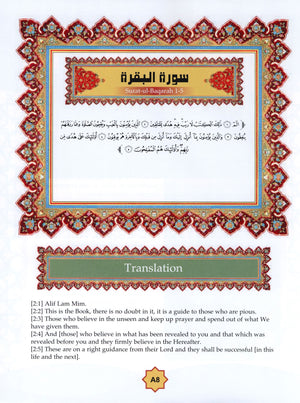 سورة البقرة
Surat-ul-Baqarah 1-5
الٓمٓ ۝ ذَٰلِكَ الْكِتَابُ لَا رَيْبَ فِيهِ هُدًى لِلْمُتَّقِينَ ۝ الَّذِينَ يُؤْمِنُونَ بِالْغَيْبِ وَيُقِيمُونَ الصَّلَاةَ وَمِمَّا رَزَقْنَاهُمْ
يُنْفِقُونَ ۝ وَالَّذِينَ يُؤْمِنُونَ بِمَا أُنْزِلَ إِلَيْكَ وَمَا أُنْزِلَ مِنْ قَبْلِكَ وَبِالْآخِرَةِ هُمْ يُوقِنُونَ ۝ أُولَٰئِكَ عَلَىٰ هُدًى مِنْ
رَبِّهِمْ وَأُولَٰئِكَ هُمُ الْمُفْلِحُونَ ۝
Translation
[2:1] Alif Lam Mim.
[2:2] This is the Book, there is no doubt in it, it is a guide to those who are pious.
[2:3] Those who believe in the unseen and keep up prayer and spend out of what We
have given them.
[2:4] And [those] who believe in what has been revealed to you and that which was
revealed before you and they firmly believe in the Hereafter.
[2:5] These are on a right guidance from their Lord and they shall be successful [in this
life and the next].
A8